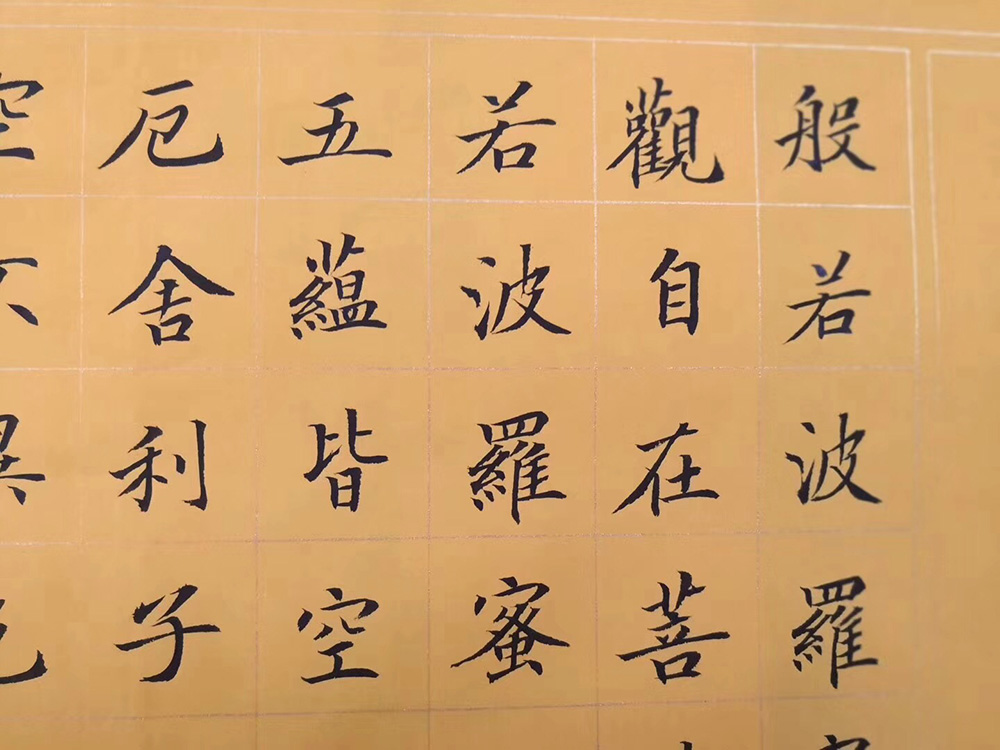 般若波羅
觀自在菩
若波羅蜜
五蘊皆空
厄舍利子
空不異色